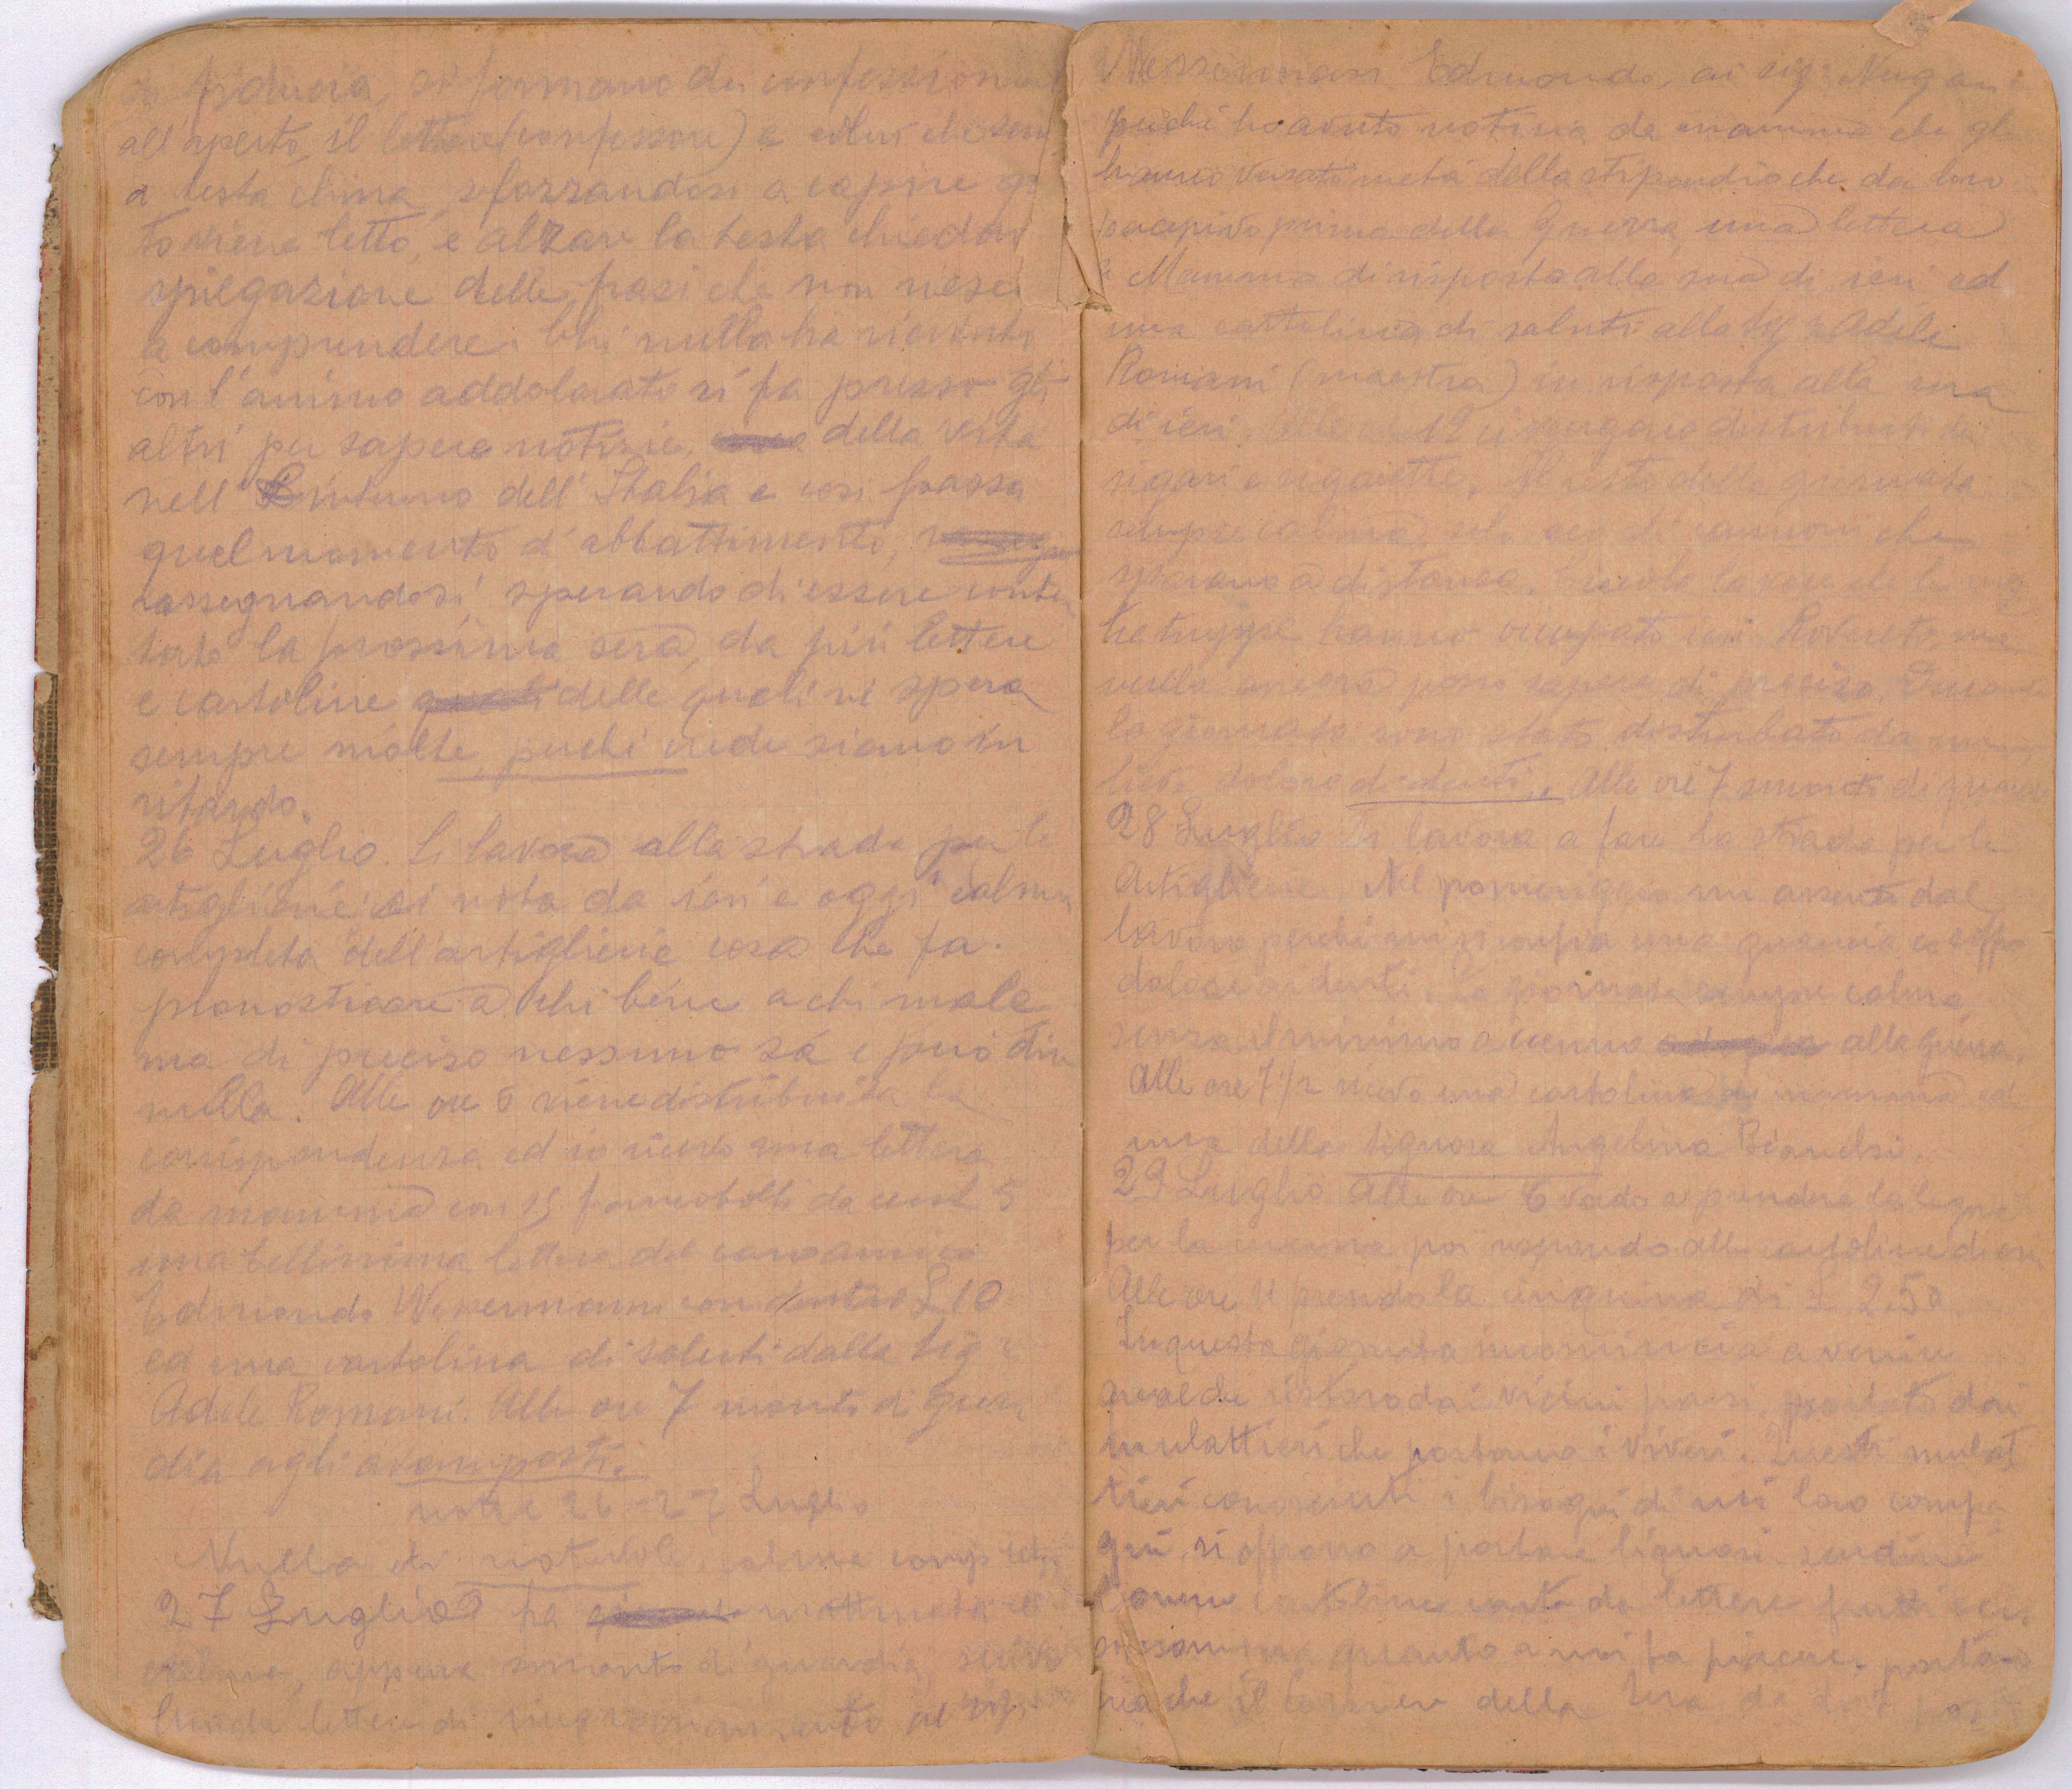 di fiducia, si formano dei confessionali
all'aperto, il lettore (confessore) e colui che sente
a testa china, sforzandosi a capire quan
to viene letto, e alzare la testa chieder
spiegazione delle frasi che non riesce
a comprendere. Chi nulla ha ricevuto
con l'animo addolorato si fa presso gli
altri per sapere notizie, della vita
nell' interno dell' Italia e così passa
quel momento d' abbattimento,
rassegnandosi, sperando di essere conten
tato la prossima sera, da più lettere
e cartoline delle quali ne spera
sempre molte, perchè crede siano in
ritardo.
26 Luglio. Si lavora alla strada per le
artiglierie si nota da ieri e oggi calma
completa dell'artiglieria cosa che fa
pronosticare a chi bene a chi male
ma di preciso nessuno sá e può dir
nulla. Alle ore 5 viene distribuita la
corrispondenza ed io ricevo una lettera
da mamma con 15 francobolli da cent 5
una bellissima lettera del caro amico
Edmondo Wessermann con dentro £ 10
ed una cartolina di saluti dalla Sig.a
Adele Romani. Alle ore 7 monto di guar
dia agli avamposti.
notte 26-27 Luglio
Nulla di notevole, calma completa
27 Luglio ha mattinata è
calma, appena smonto di guardia, scrivo
lettere di ringraziamento al sig.
Wessermann Edmondo, ai sig.
perchè ho avuto notizia da mamma che gli
hanno versato metá dello stipendio che da loro
percepivo prima della Guerra, una lettera
a Mamma di risposta alla sua di ieri ed
una cartolina di saluti alla Sig.a Adele
Romani (maestra) in risposta alla sua
di ieri. Alle ore 12 ci vengono distribuiti dei
sigari e sigarette. Il resto della giornata
sempre calma, solo cannoni che
sparano a distanza. Circola la voce che le
truppe hanno occupato ieri Rovereto ma
nulla ancora posso sapere di preciso. Durante
la giornata sono stato disturbato da
dolore di denti. Alle ore 7 smonto di guardia
28 Luglio Si lavora a fare la strada per le
Artiglierie. Nel pomeriggio mi assento dal
lavoro perchè mi si gonfia una guancia
dolore ai denti. La giornata sempre calma,
senza il minimo accenno alla guerra.
Alle ore 7 1/2 ricevo una cartolina di mamma ed
una della Signora Angelina Bianchi.
29 Luglio Alle ore 6 vado a prendere la legna
per la cucina poi rispondo alle cartoline di ieri
Alle ore 11 prendo la cinquina di £ 2.50
In questa giornata incomincia a venire
qualche ristoro dai vicini paesi, portato dai
mulattieri che portano i viveri. Questi mulat
tieri conosciuti i bisogni di noi loro compa
gni, si offrono a portare liquori sardine
limoni cartoline carta da lettere frutti
insomma quanto a noi fa piacere, portano
il corriere della Sera